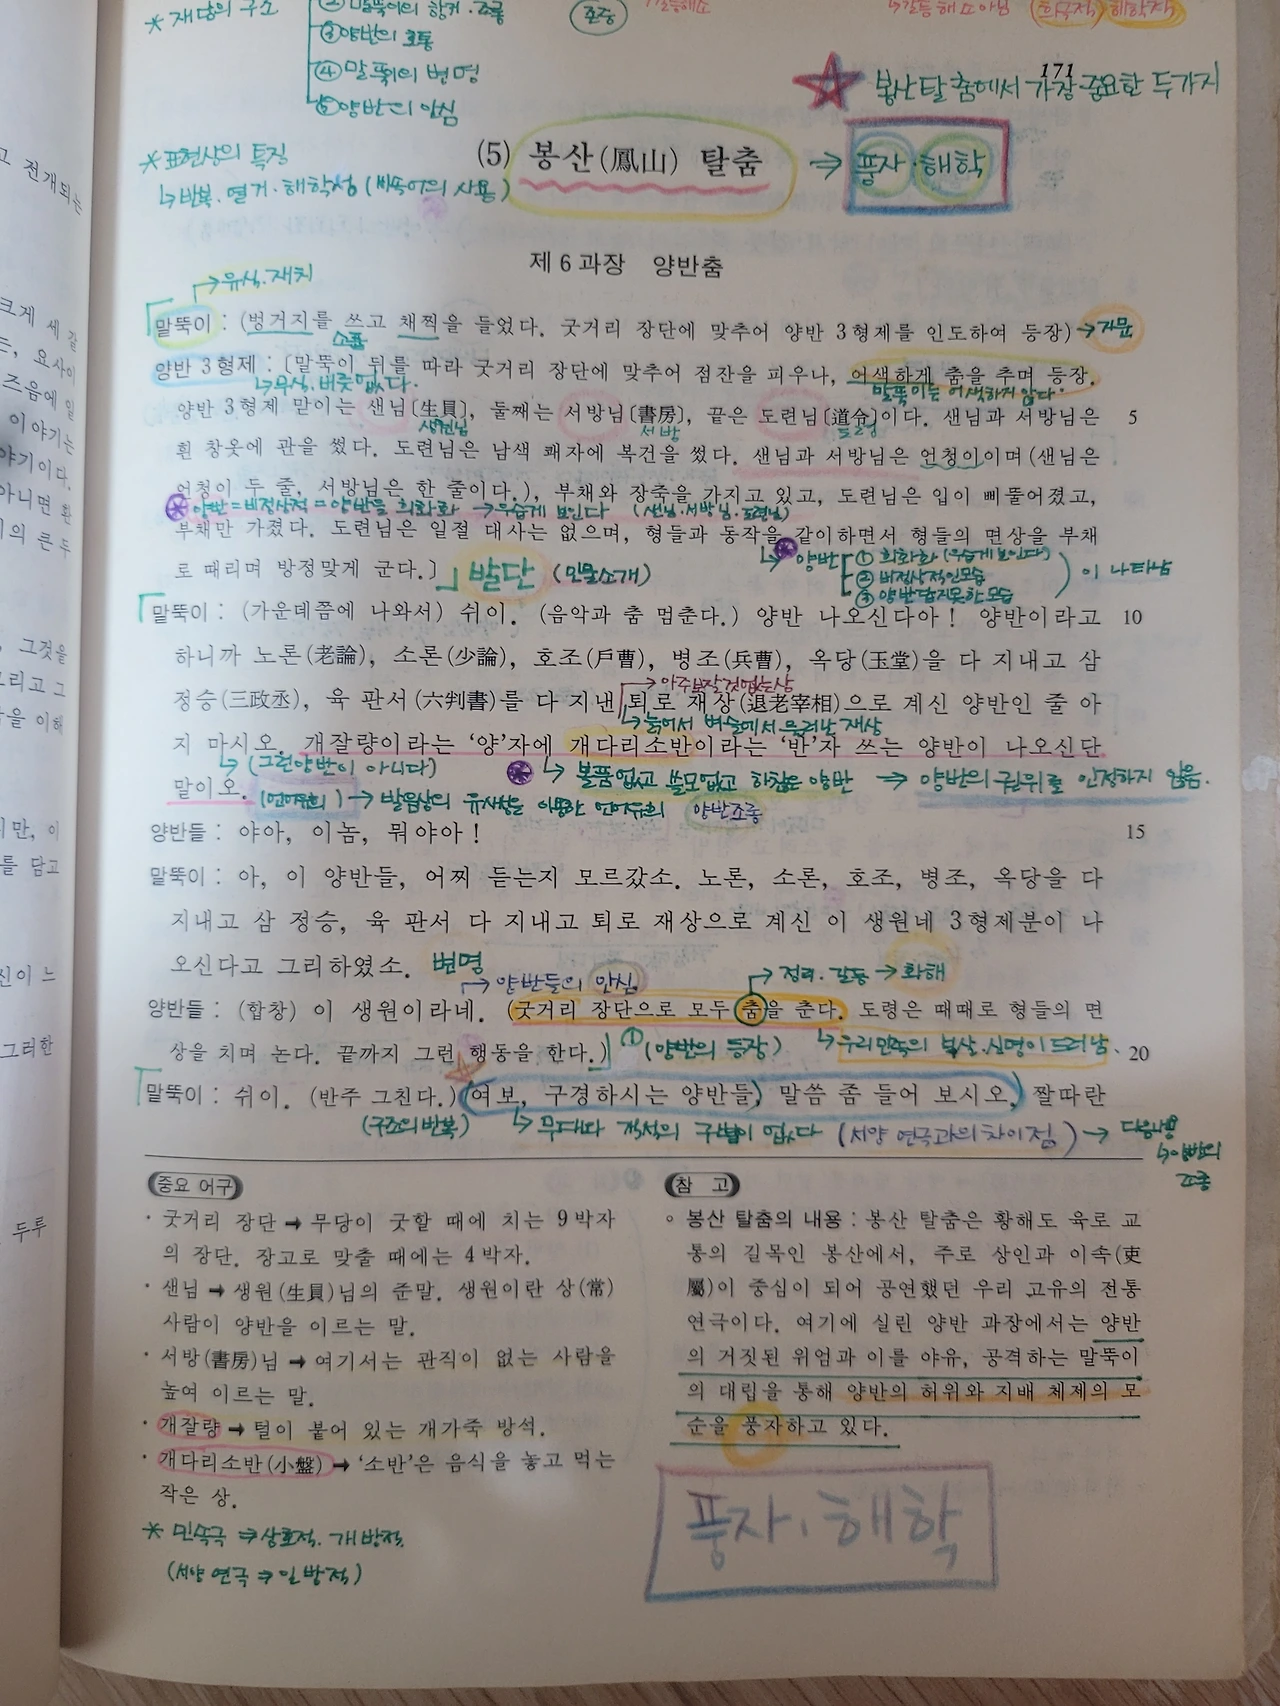 * 재담의 구조
② 말뚝이의 항거·조롱
③ 양반의 호통
④ 말뚝이의 변명
⑤ 양반의 안심
존동
갈등해소
↳갈등 해소 아님
희극적 해학적
171
☆ 봉산탈춤에서 가장 중요한 두가지
* 표현상의 특징
↳ 반복·열거·해학성 (비속어의 사용)
(5) 봉산(鳳山) 탈춤 → 풍자·해학
제 6 과장 양반춤
→유식·재치
말뚝이 : (벙거지를 쓰고 채찍을 들었다. 굿거리 장단에 맞추어 양반 3 형제를 인도하여 등장) →
소품
양반 3 형제 : [말뚝이 뒤를 따라 굿거리 장단에 맞추어 점잔을 피우나, 어색하게 춤을 추며 등장.
↳무식·버릇없다.
말뚝이는 어색하지 않다.
양반 3 형제 맏이는 샌님[生員], 둘째는 서방님[書房], 끝은 도련님[道令]이다. 샌님과 서방님은 5
생원님 서방 도령
흰 창옷에 관을 썼다. 도련님은 남색 쾌자에 복건을 썼다. 샌님과 서방님은 언청이이며(샌님은
언청이 두 줄, 서방님은 한 줄이다.), 부채와 장죽을 가지고 있고, 도련님은 입이 삐뚤어졌고,
양반=비정상적=양반을 희화화 →우습게 보인다 (샌님·서방님·도련님)
부채만 가졌다. 도련님은 일절 대사는 없으며, 형들과 동작을 같이하면서 형들의 면상을 부채
↳ 양반 ① 희화화 (우습게 보인다)
② 비정상적인 모습
③ 양반답지 못한 모습
이 나타남
로 때리며 방정맞게 군다.] 발단 (인물소개)
말뚝이 : (가운데쯤에 나와서) 쉬이. (음악과 춤 멈춘다.) 양반 나오신다아! 양반이라고 10
하니까 노론(老論), 소론(少論), 호조(戶曹), 병조(兵曹), 옥당(玉堂)을 다 지내고 삼
→아주 보잘것없는 상
정승(三政丞), 육 판서(六判書)를 다 지낸 퇴로 재상(退老宰相)으로 계신 양반인 줄 아
↳늙어서 벼슬에서 물러난 재상
지 마시오. 개잘량이라는 ‘양’자에 개다리소반이라는 ‘반’자 쓰는 양반이 나오신단
↳ (그런양반이 아니다)
↳ 볼품없고 쓸모없고 하찮은 양반 → 양반의 권위를 인정하지 않음.
말이오. (언어유희) → 발음상의 유사성을 이용한 언어유희 양반조롱
양반들 : 야아, 이놈, 뭐야아! 15
말뚝이 : 아, 이 양반들, 어찌 듣는지 모르갔소. 노론, 소론, 호조, 병조, 옥당을 다
지내고 삼 정승, 육 판서 다 지내고 퇴로 재상으로 계신 이 생원네 3 형제분이 나
오신다고 그리하였소. 변명
→양반들의 안심
→ 갈등 → 화해
양반들 : (합창) 이 생원이라네. (굿거리 장단으로 모두 춤을 춘다. 도령은 때때로 형들의 면
상을 치며 논다. 끝까지 그런 행동을 한다.) ① (양반의 등장) 20
↳우리민족의 신명이 드러남.
말뚝이 : 쉬이. (반주 그친다.) 여보, 구경하시는 양반들, 말씀 좀 들어 보시오. 짤따란
(구조의 반복) ↳ 무대와 객석의 구별이 없다 (서양 연극과의 차이점) →
↳양반의 조롱
중요 어구
· 굿거리 장단 → 무당이 굿할 때에 치는 9 박자
의 장단. 장고로 맞출 때에는 4 박자.
· 샌님 → 생원(生員)님의 준말. 생원이란 상(常)
사람이 양반을 이르는 말.
· 서방(書房)님 → 여기서는 관직이 없는 사람을
높여 이르는 말.
· 개잘량 → 털이 붙어 있는 개가죽 방석.
· 개다리소반(小盤) → ‘소반’은 음식을 놓고 먹는
작은 상.
* 민속극 ⇒ 상호적·개방적
(서양 연극 ⇒ 일방적)
참 고
◦ 봉산 탈춤의 내용 : 봉산 탈춤은 황해도 육로 교
통의 길목인 봉산에서, 주로 상인과 이속(吏
屬)이 중심이 되어 공연했던 우리 고유의 전통
연극이다. 여기에 실린 양반 과장에서는 양반
의 거짓된 위엄과 이를 야유, 공격하는 말뚝이
의 대립을 통해 양반의 허위와 지배 체제의 모
순을 풍자하고 있다.
풍자·해학